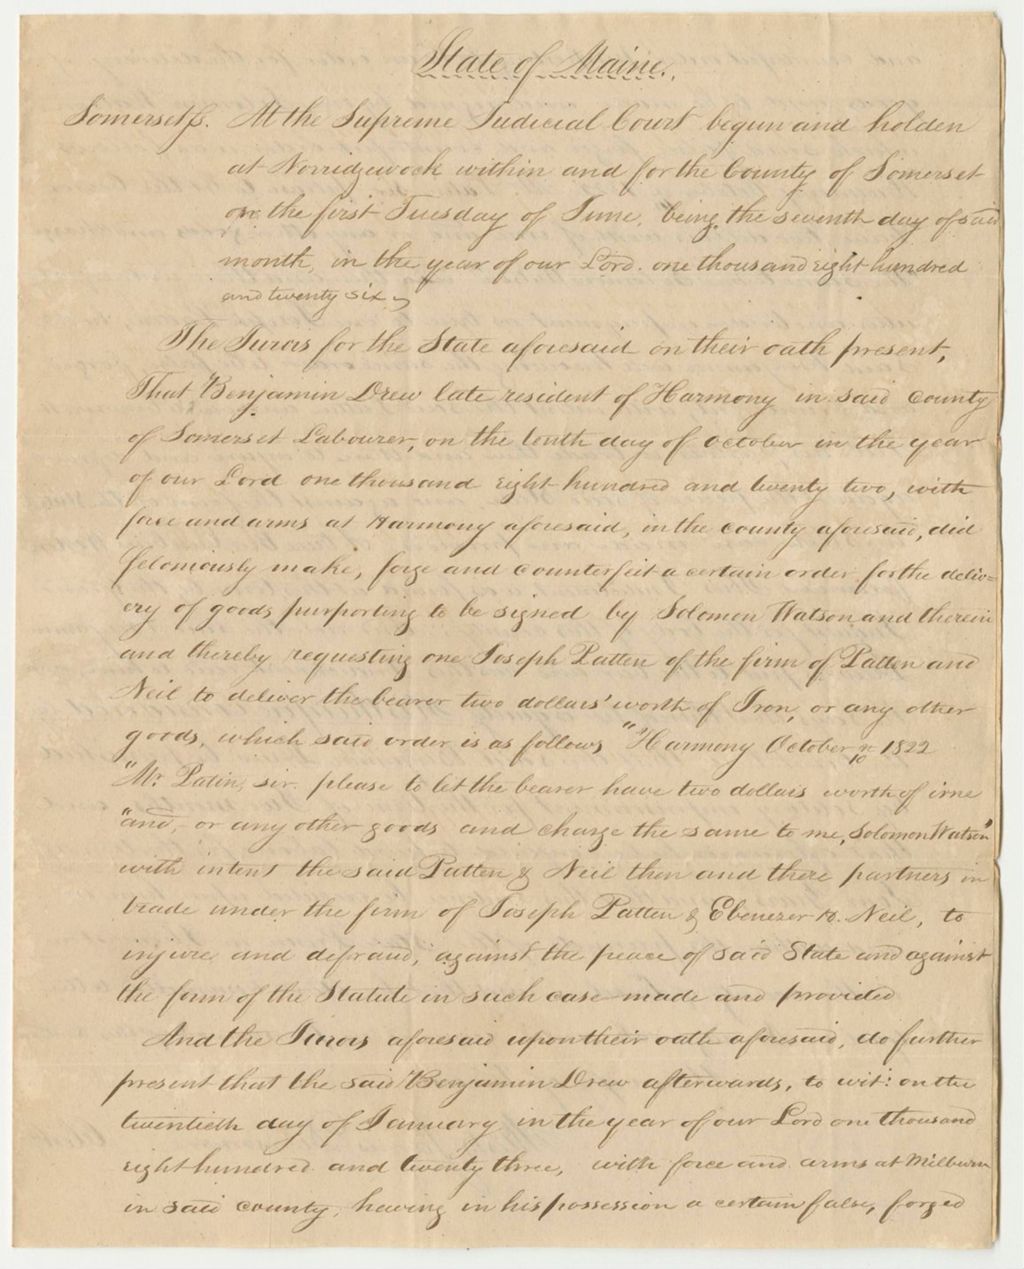 State of Maine.
Somerset ss. At the Supreme Judicial Court begun and holden
at Norridgewock within and for the County of Somerset
on the first Tuesday of June, being the seventh day of said
month, in the year of our Lord one thousand eight hundred
and twenty six,
The Jurors for the State aforesaid on their oath present,
That Benjamin Drew late resident of Harmony in said county
of Somerset Labourer, on the tenth day of October in the year
of our Lord one thousand eight hundred and twenty two, with
force and arms at Harmony aforesaid, in the county aforesaid, did
feloniously make, forge and counterfeit a certain order for the deliv=
ery of goods, purporting to be signed by Solomon Watson and therein
and thereby requesting one Joseph Patten of the firm of Patten and
Neil to deliver the bearer two dollars' worth of Iron, or any other
goods, which said order is as follows "Harmony October 10 1822
"Mr. Patin, sir please to let the bearer have two dollars worth of irne
"and, or any other goods and charge the same to me, Solomon Watson"
with intent the said Patten & Neil then and there partners in
trade under the firm of Joseph Patten & Ebenezer H. Neil, to
injure and defraud, against the peace of said State and against
the form of the Statute in such case made and provided
And the Jurors aforesaid upon their oath aforesaid, do further
present that the said Benjamin Drew afterwards, to wit: on the
twentieth day of January in the year of our Lord one thousand
eight hundred and twenty three, with force and arms at Milburn
in said county, having in his possession a certain false, forged